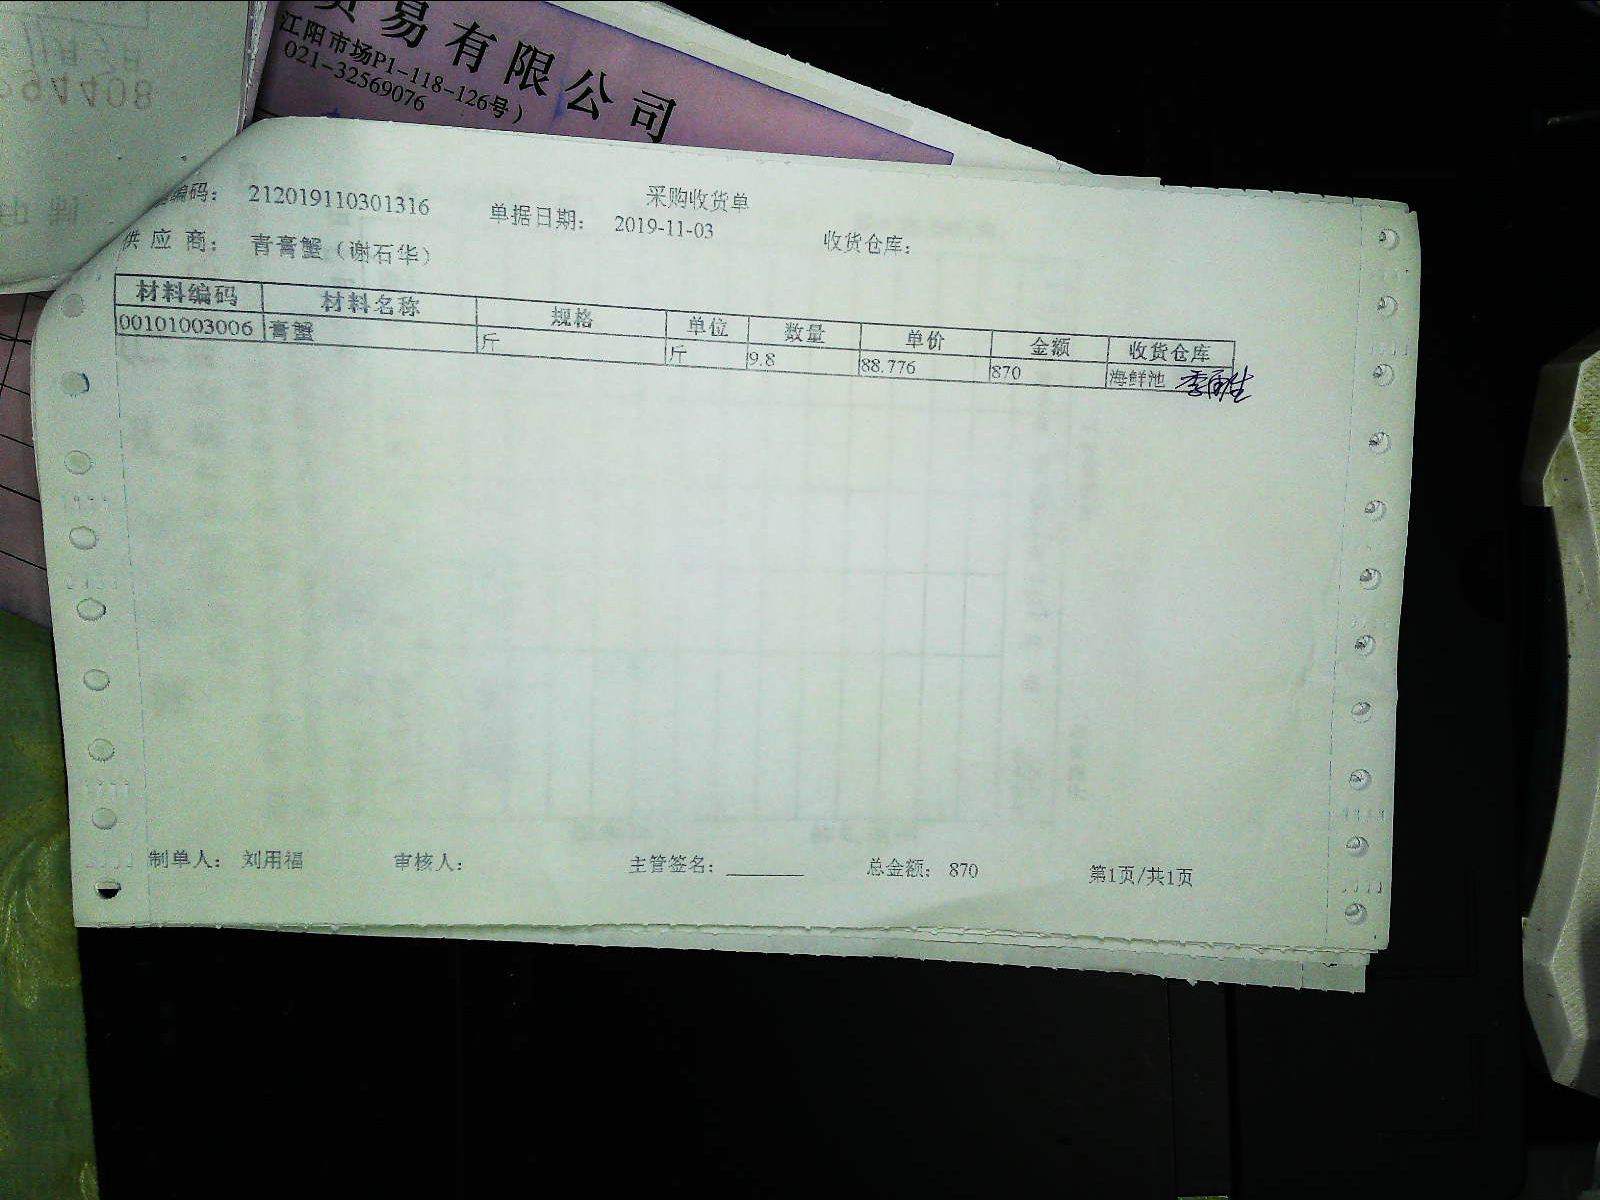 贸易有限公司
江阳市场P1-118-126号）
021-32569076
采购收货单
编码： 212019110301316 单据日期： 2019-11-03 收货仓库：
供应商： 青膏蟹（谢石华）
材料编码 材料名称 规格 单位 数量 单价 金额 收货仓库
00101003006 膏蟹 斤 斤 9.8 88.776 870 海鲜池
制单人： 刘用福 审核人： 主管签名： 总金额： 870 第1页/共1页